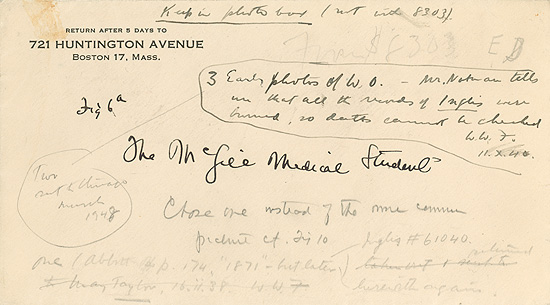 Keep in photo box (not in 8303).
RETURN AFTER 5 DAYS TO
721 HUNTINGTON AVENUE
BOSTON 17, MASS.
From 8303
3 Early photos of W.O. — Mr. Notman tells
me that all the records of Inglis were
burned, so dates cannot be checked
W.W.F.
11.X.40.
Fig 6a
The McGill Medical Student
Two
sent to Chicago
March
1948
Chose one instead of the more common
picture cf. Fig 10
Inglis #61040.
one (Abbott p. 174, "1871" - but later,
W.W.F.
herewith again.